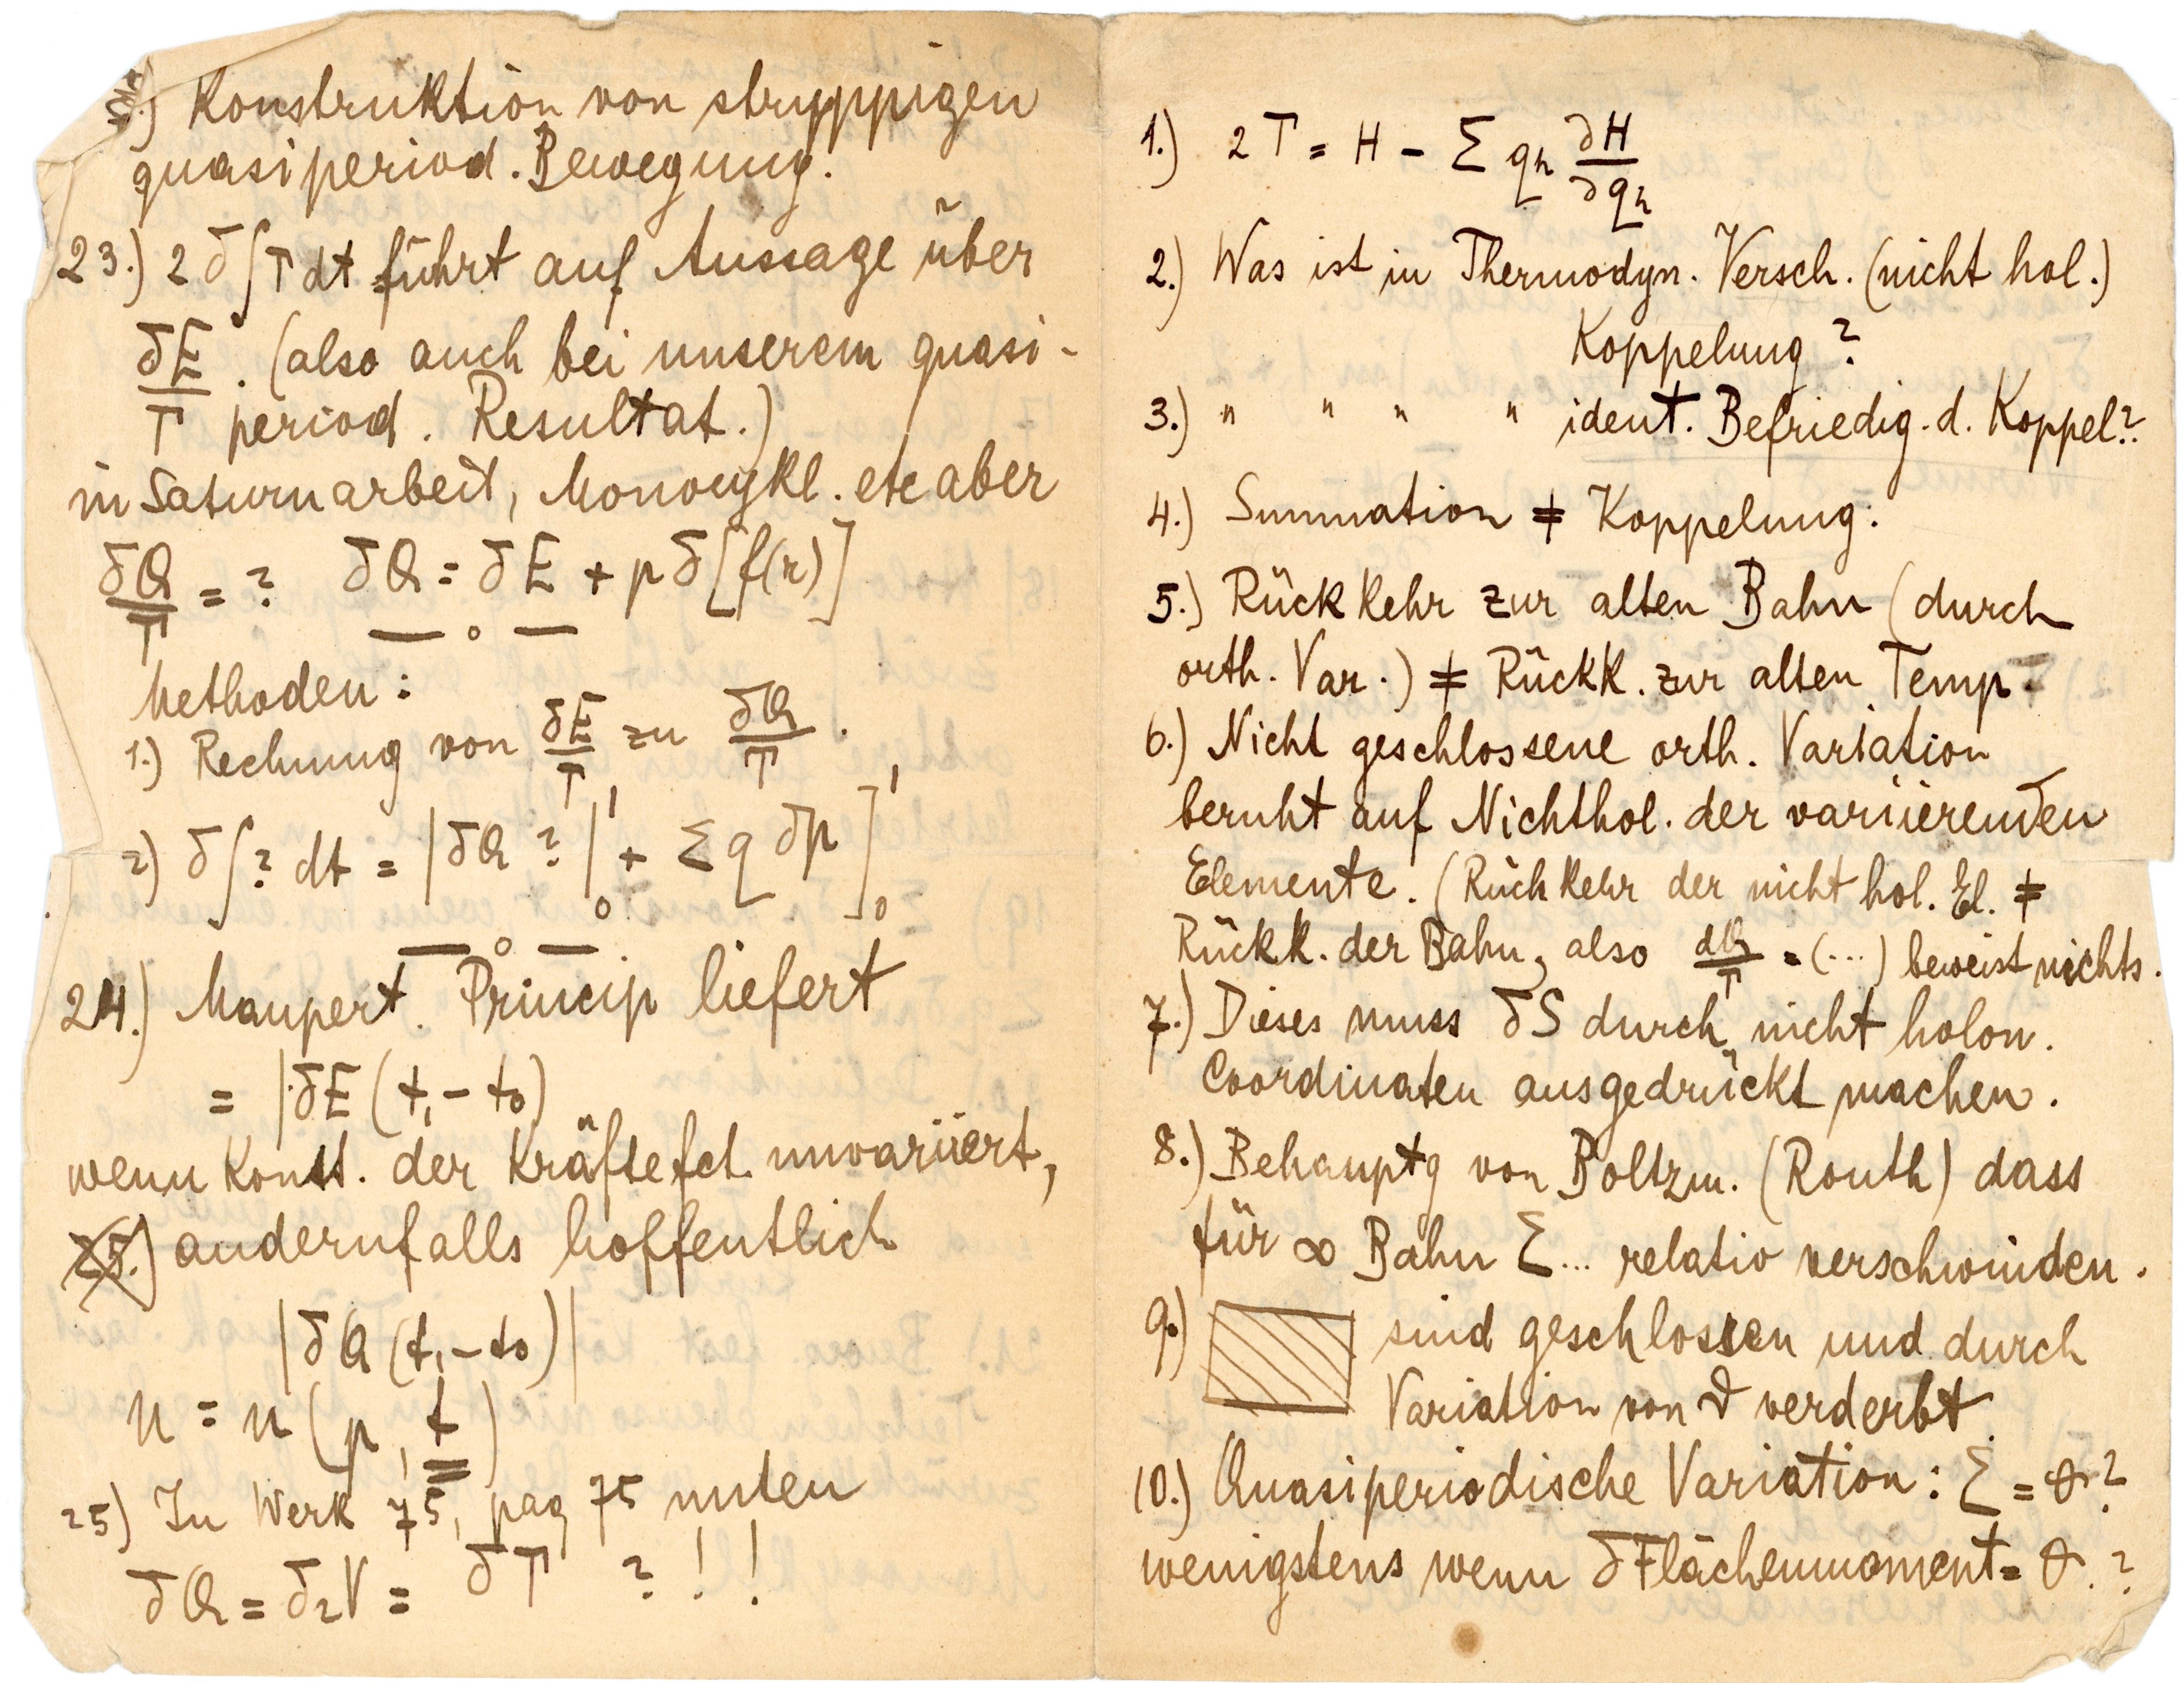 ) Konstruktion von struppigen
quasiperiod. Bewegung.
23.) 2 δ∫T dt führt auf Aussage über
δE/T. (also auch bei unserem quasi-
period. Resultat.)
in Saturnarbeit, Monocykl. etc aber
δQ/T = ? δQ = δE + p δ[f(r)]
— o —
Methoden:
1.) Rechnung von δE/T zu δQ/T.
2) δ∫? dt = |δQ ?|₀¹ + Σ q δp]₀¹
— o —
24.) Maupert. Princip liefert
= |δE (t₁ - t₀)
wenn Konst. der Kräftefct. unvariiert,
25.) andernfalls hoffentlich
|δQ (t₁ - t₀)|
u = u (p, t)
25) In Werk 75, pag 75 unten
δQ = δ₂V = δT ? ! !
1.) 2 T = H - Σ qₕ ∂H/∂qₕ
2.) Was ist in Thermodyn. Versch. (nicht hol.)
Koppelung?
3.) " " " " ident. Befriedig. d. Koppel?.
4.) Summation ≠ Koppelung.
5.) Rückkehr zur alten Bahn (durch
orth. Var.) ≠ Rückk. zur alten Temp.
6.) Nicht geschlossene orth. Variation
beruht auf Nichthol. der variierenden
Elemente. (Rückkehr der nicht hol. El. ≠
Rückk. der Bahn, also dQ/T = (...) beweist nichts.
7.) Dieses muss δS durch nicht holon.
Coordinaten ausgedrückt machen.
8.) Behauptg von Boltzm. (Routh) dass
für ∞ Bahn Σ... relativ verschwinden.
9.) sind geschlossen und durch
Variation von ϑ verderbt.
10.) Quasiperiodische Variation: Σ = 0?
wenigstens wenn δ Flächenmoment = 0.?